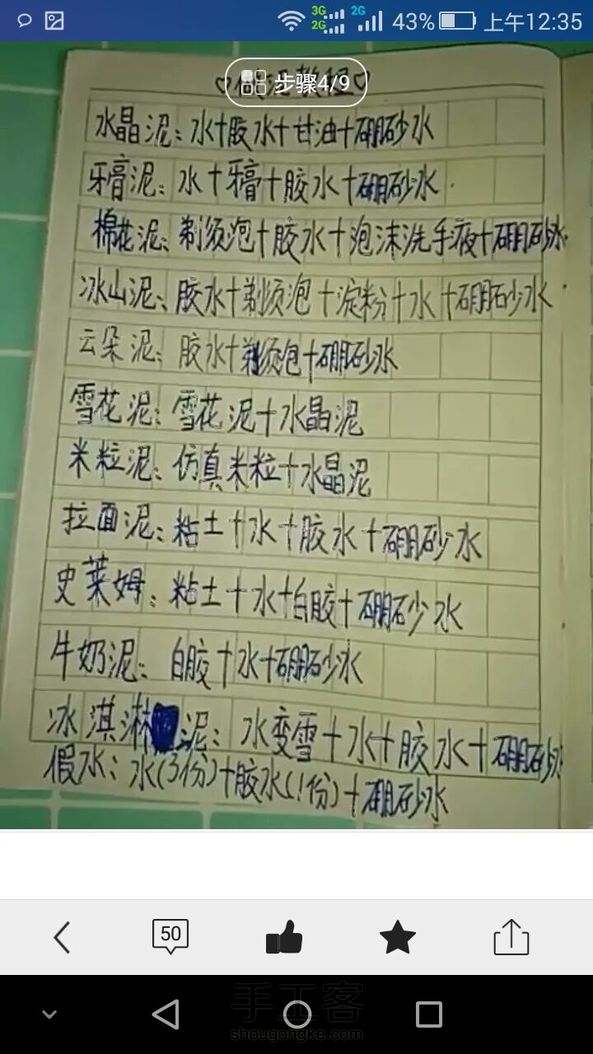 3G
2G
2G
43%
上午12:35
步骤4/9
♡教程♡
水晶泥：水+胶水+甘油+硼砂水
牙膏泥：水+牙膏+胶水+硼砂水.
棉花泥：剃须泡+胶水+泡沫洗手液+硼砂水.
冰山泥：胶水+剃须泡+淀粉+水+硼砂水.
云朵泥：胶水+剃须泡+硼砂水
雪花泥：雪花泥+水晶泥
米粒泥：仿真米粒+水晶泥
拉面泥：粘土+水+胶水+硼砂水
史莱姆：粘土+水+白胶+硼砂水
牛奶泥：白胶+水+硼砂水
冰淇淋泥：水变雪+水+胶水+硼砂
假水：水(3份)+胶水(1份)+硼砂水
50
手工客
shougongke.com